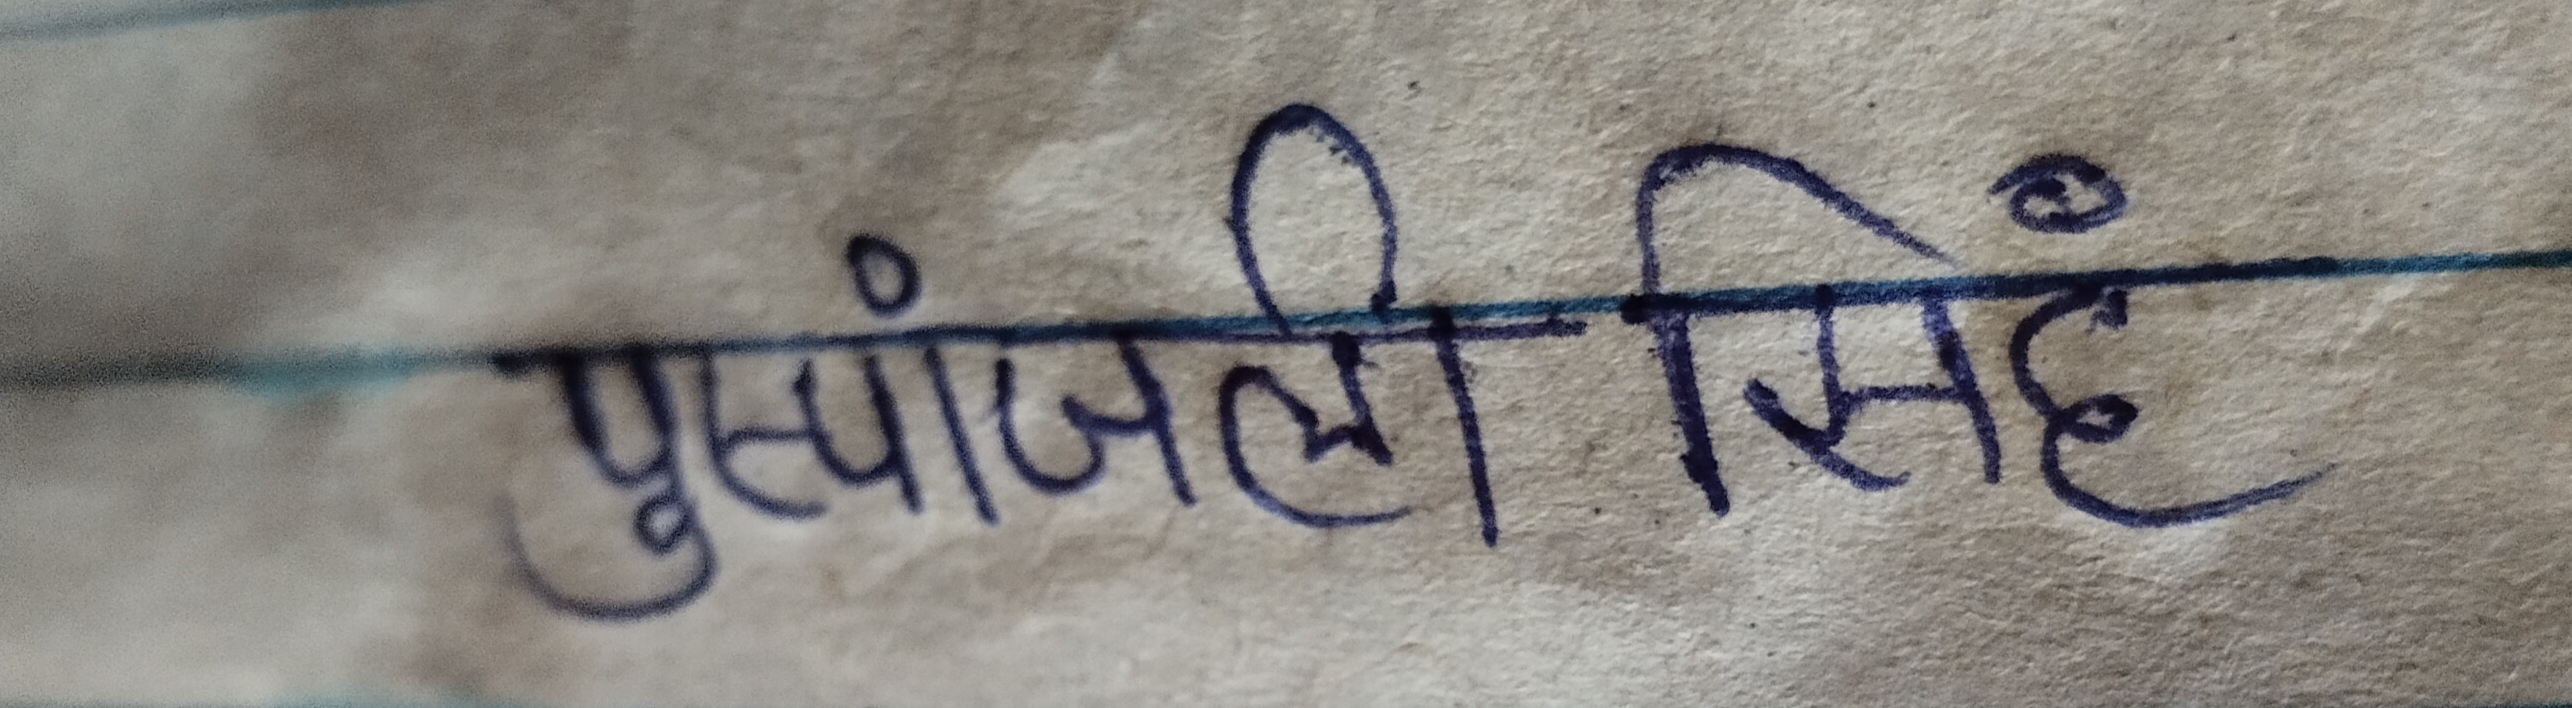 पुस्पांजली सिहं